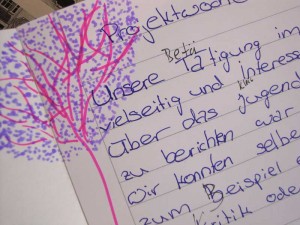 Projektwoche
Unsere Betätigung im
vielseitig und interess
Über das Jugend
zu berichten war
Wir konnten selbe
zum Beispiel e
Kritik ode